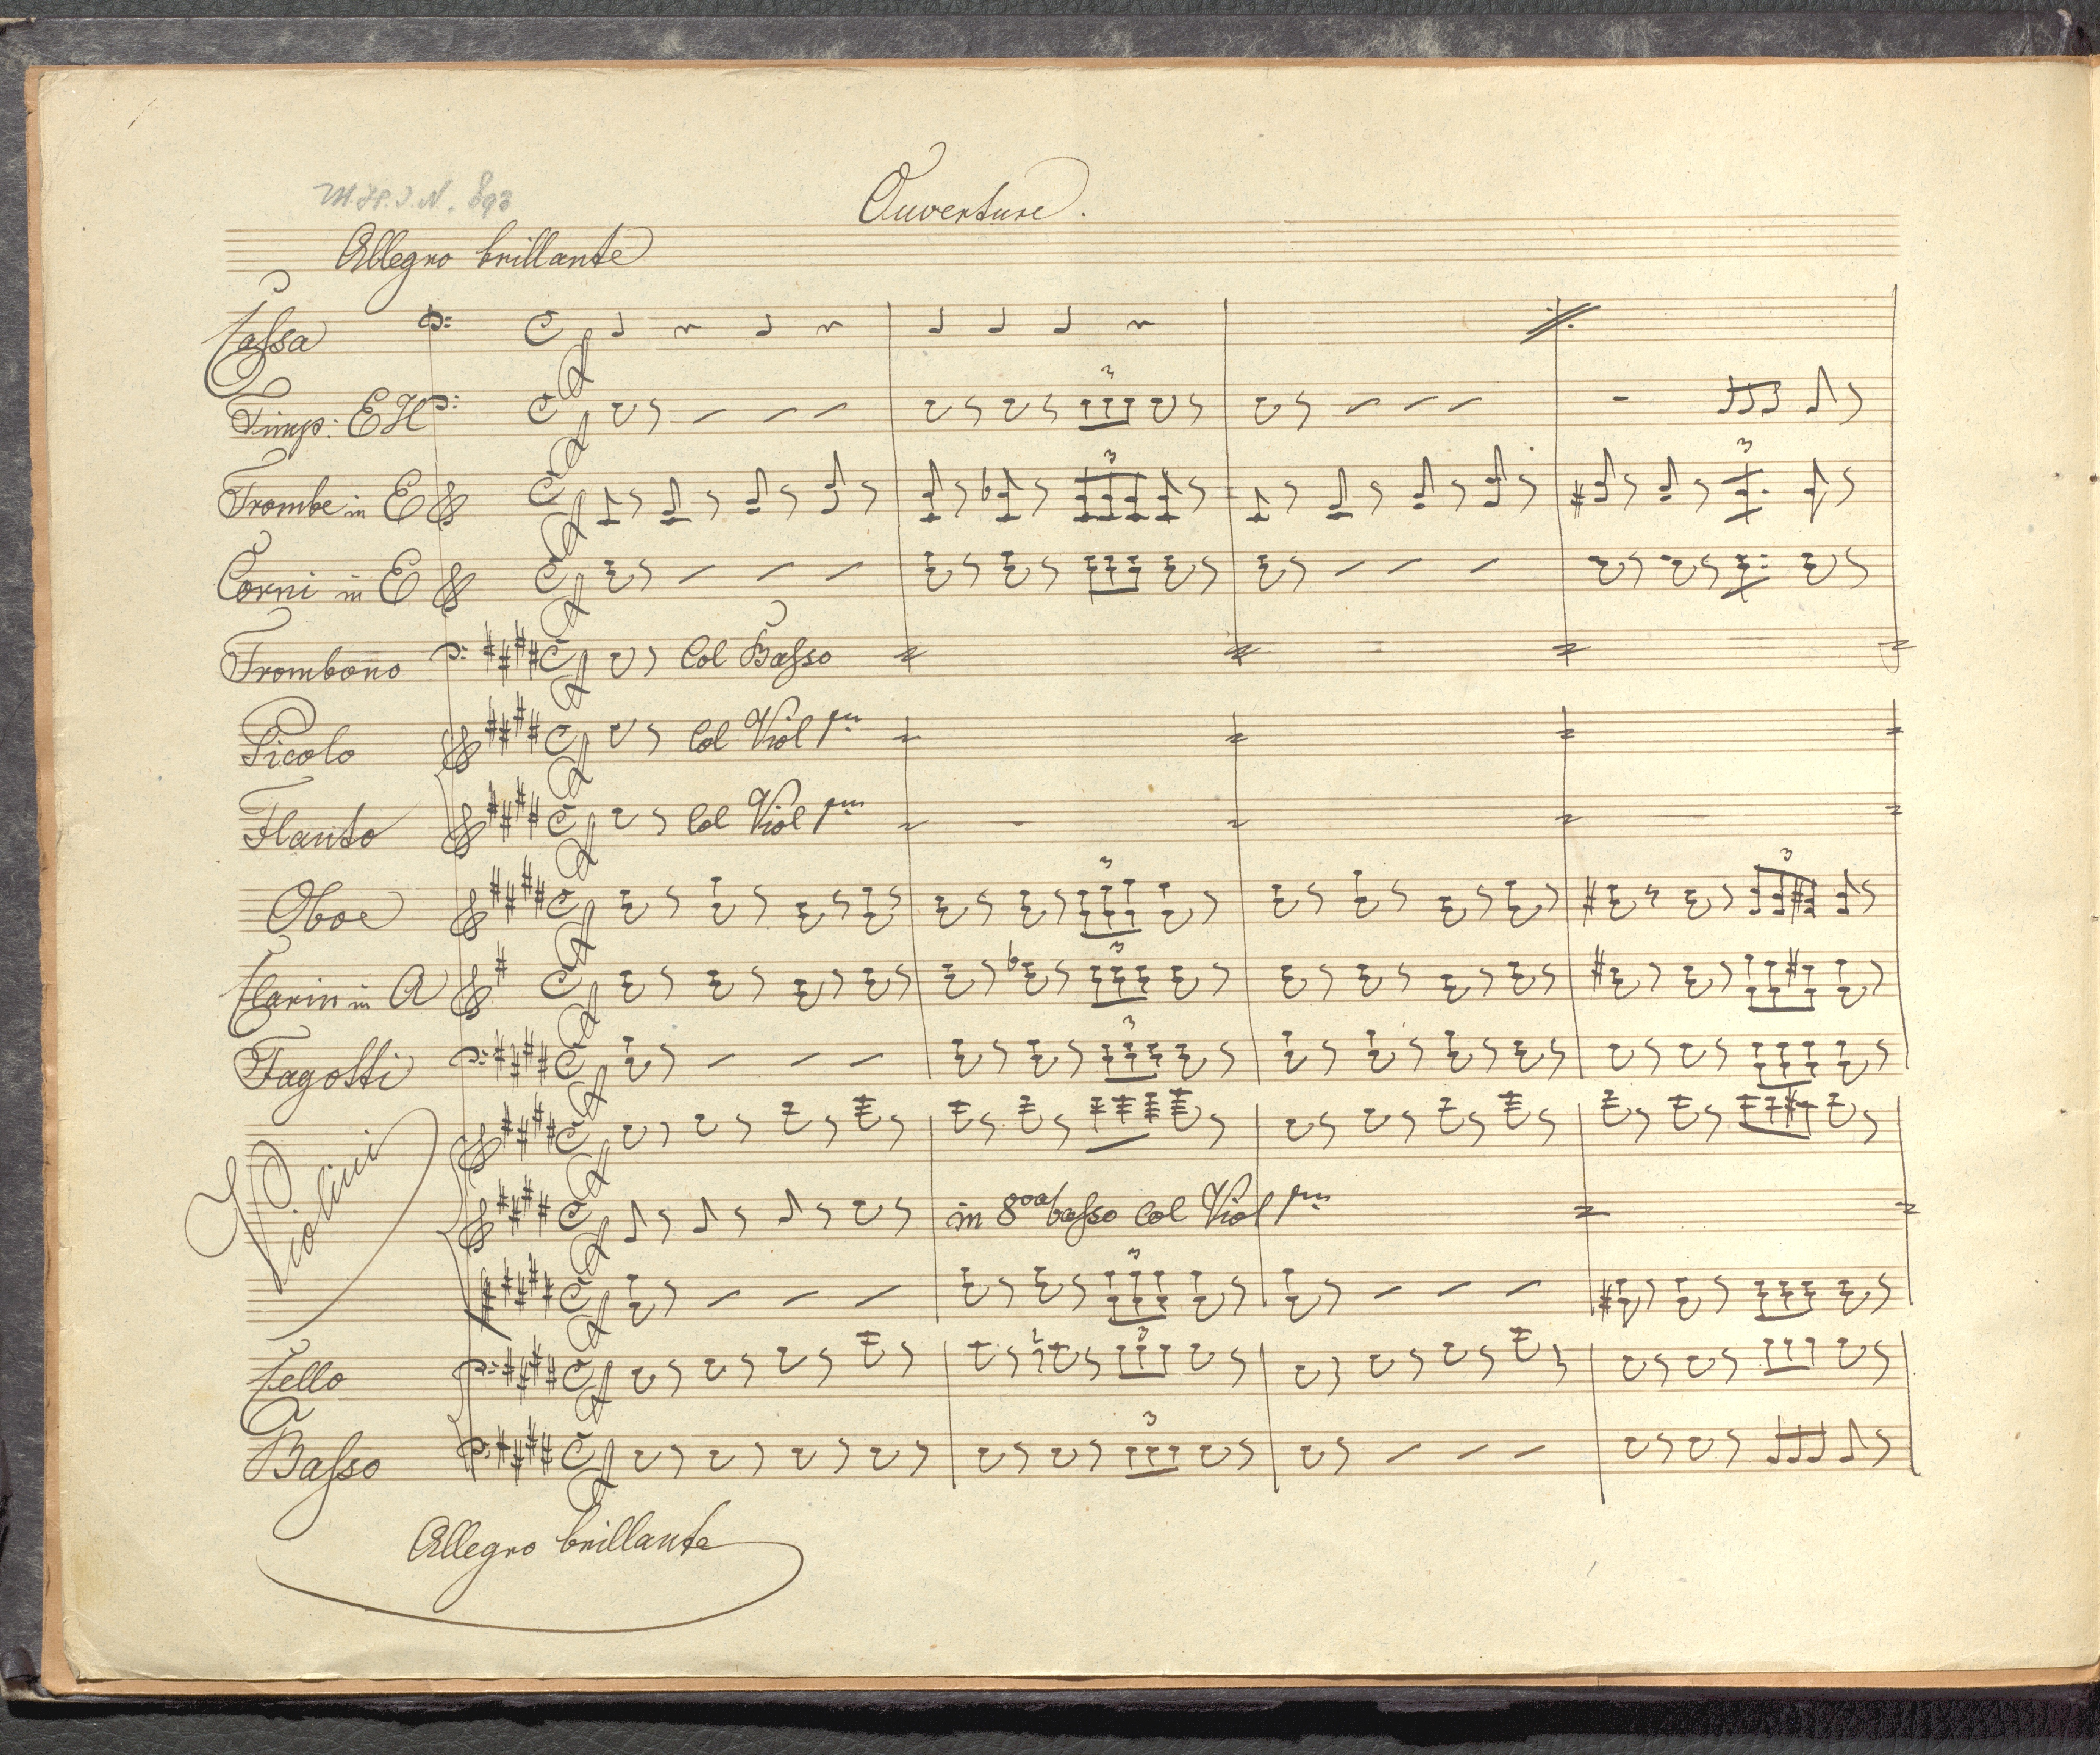 M.H.I.N. 893
Ouverture.
Allegro brillante
Cassa
Timp: E H
3
Trombe in E
3
3
Corni in E
Trombono
Col Basso
Picolo
Col Viol pm
Flauto
Col Viol pm
Oboe
3
3
Clarin in A
3
Fagotti
3
Violini
in 8va basso Col Viol pm
3
Cello
3
Basso
3
Allegro brillante